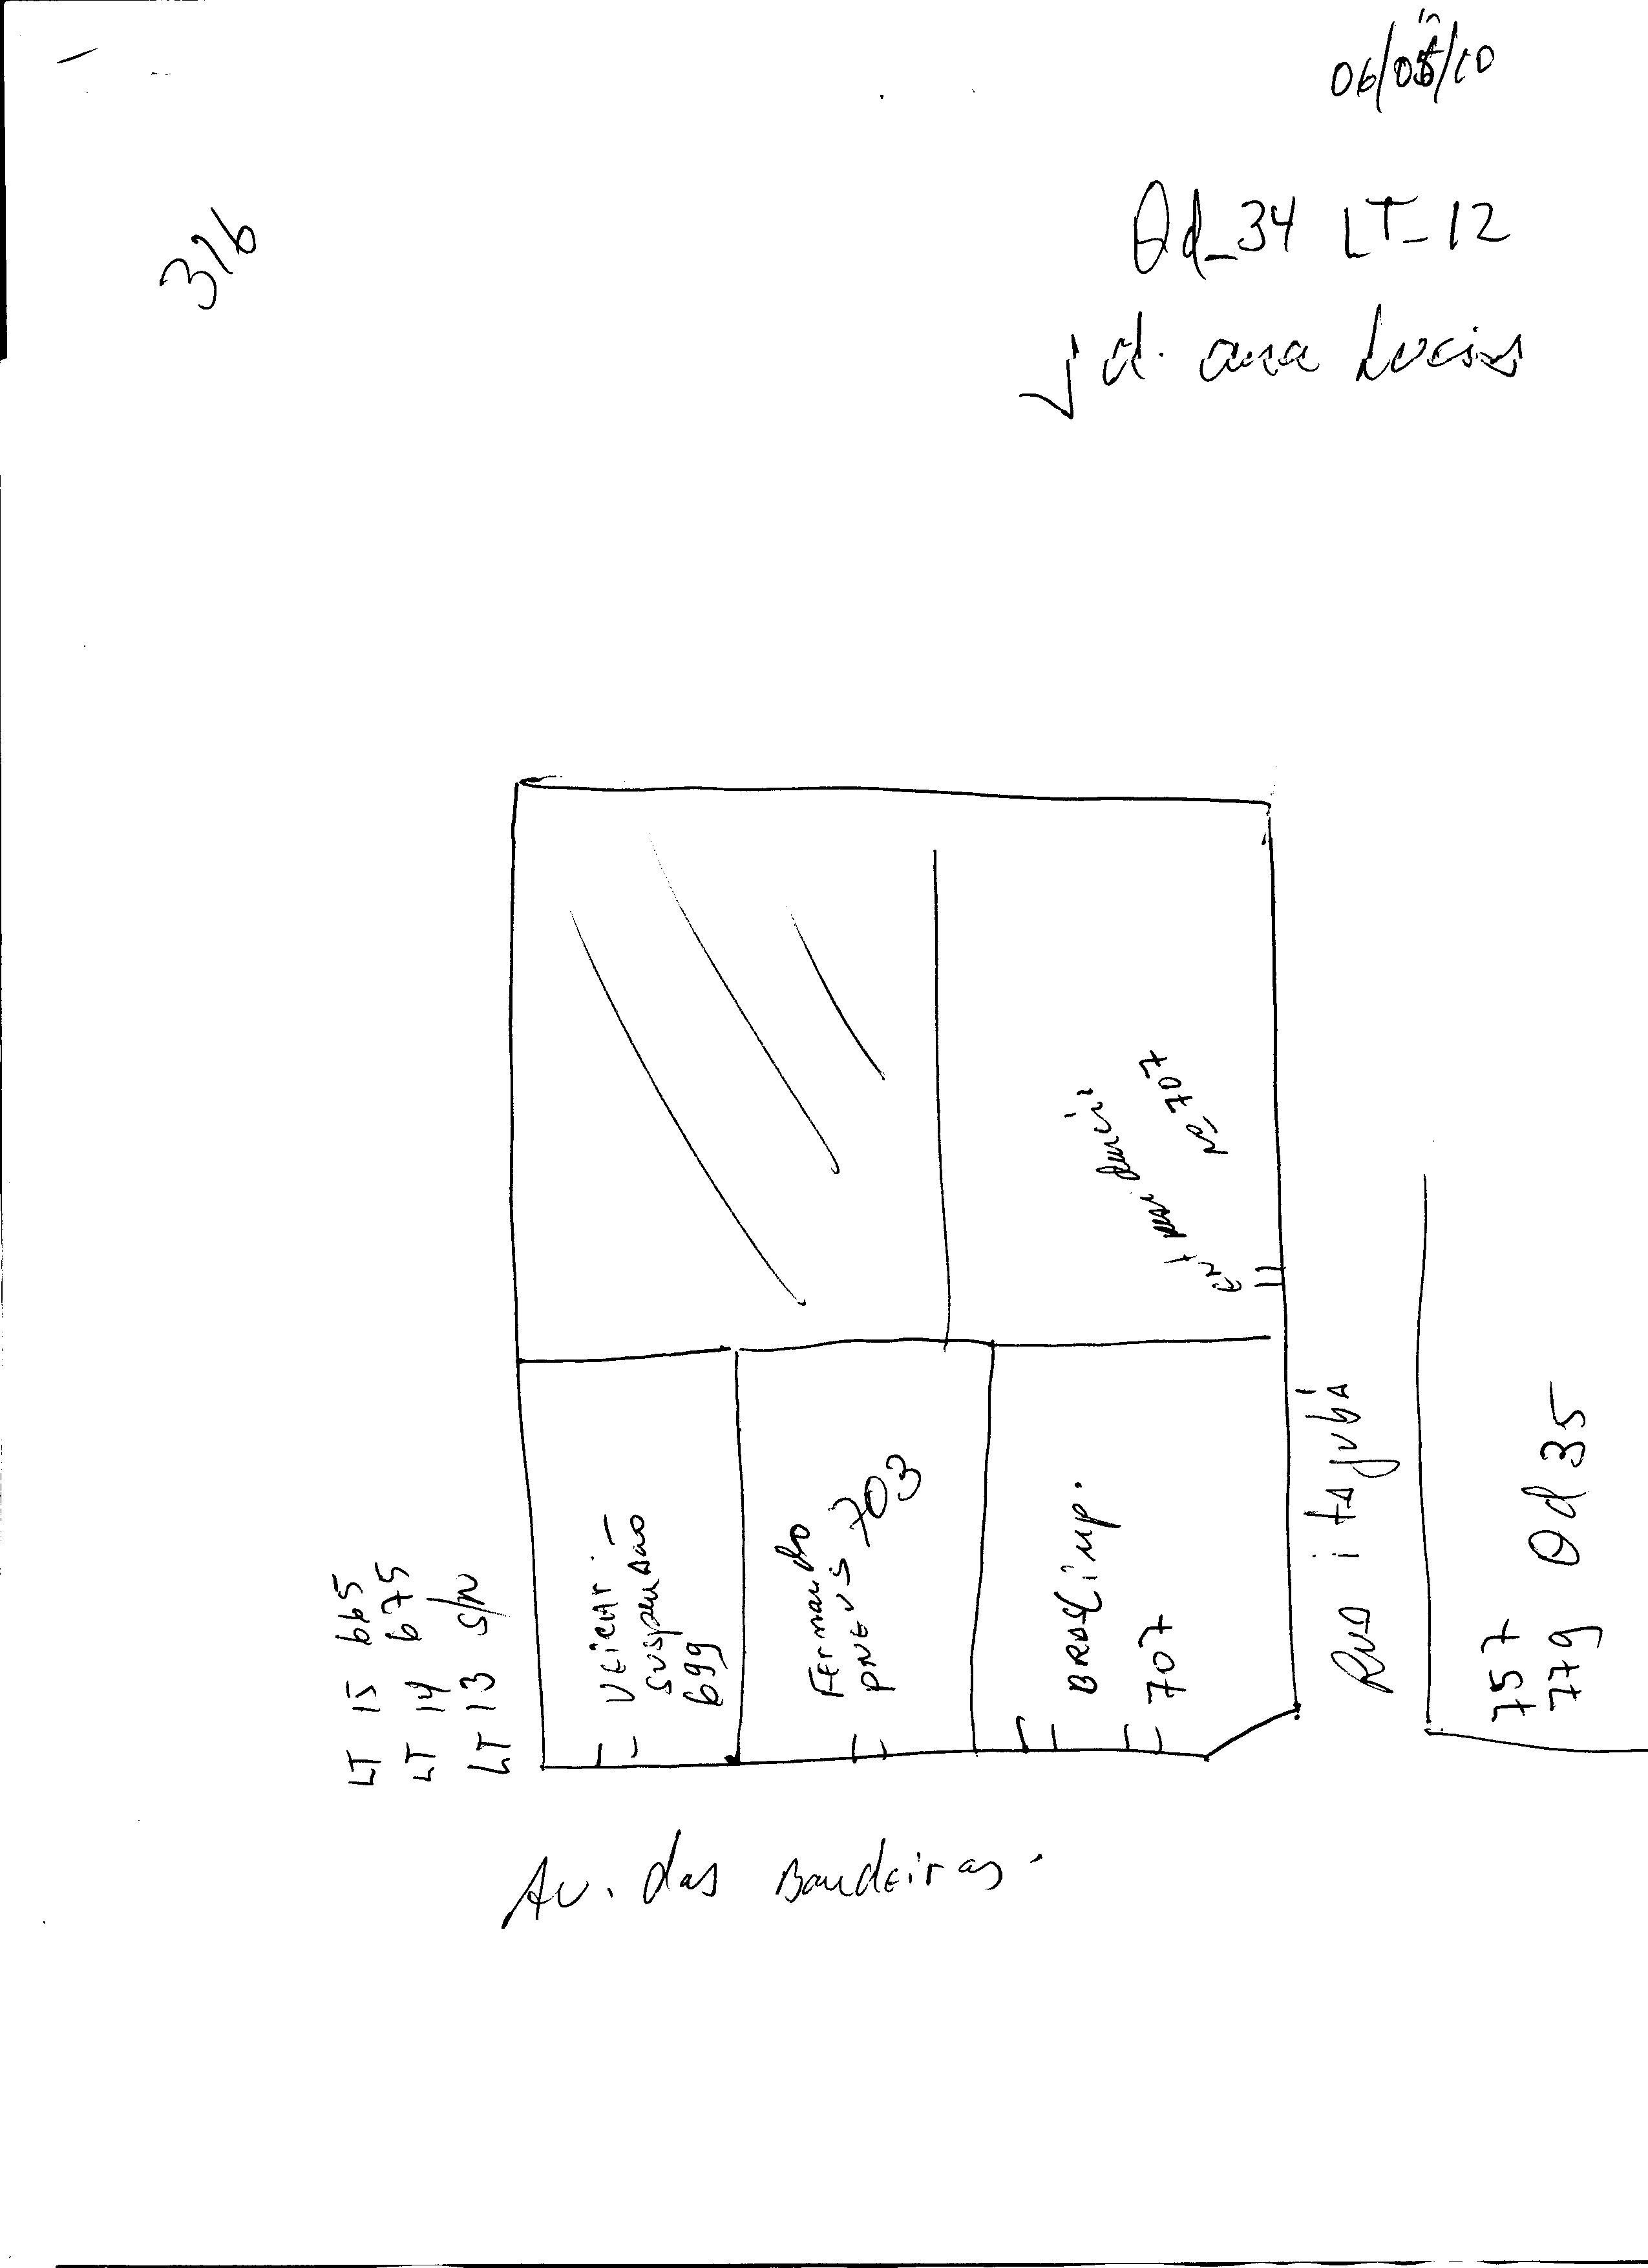 06/05/10
316
Qd_34 LT_12
Jd. ana Lucia
Nº 707
Ent
LT 15 665
LT 14 675
LT 13 S/N
Veicar -
Suspensão
699
Fernando
PNEUS 703
BRASLimp.
707
Rua itajubá
757
779 Qd 35
Av. das Bandeiras.